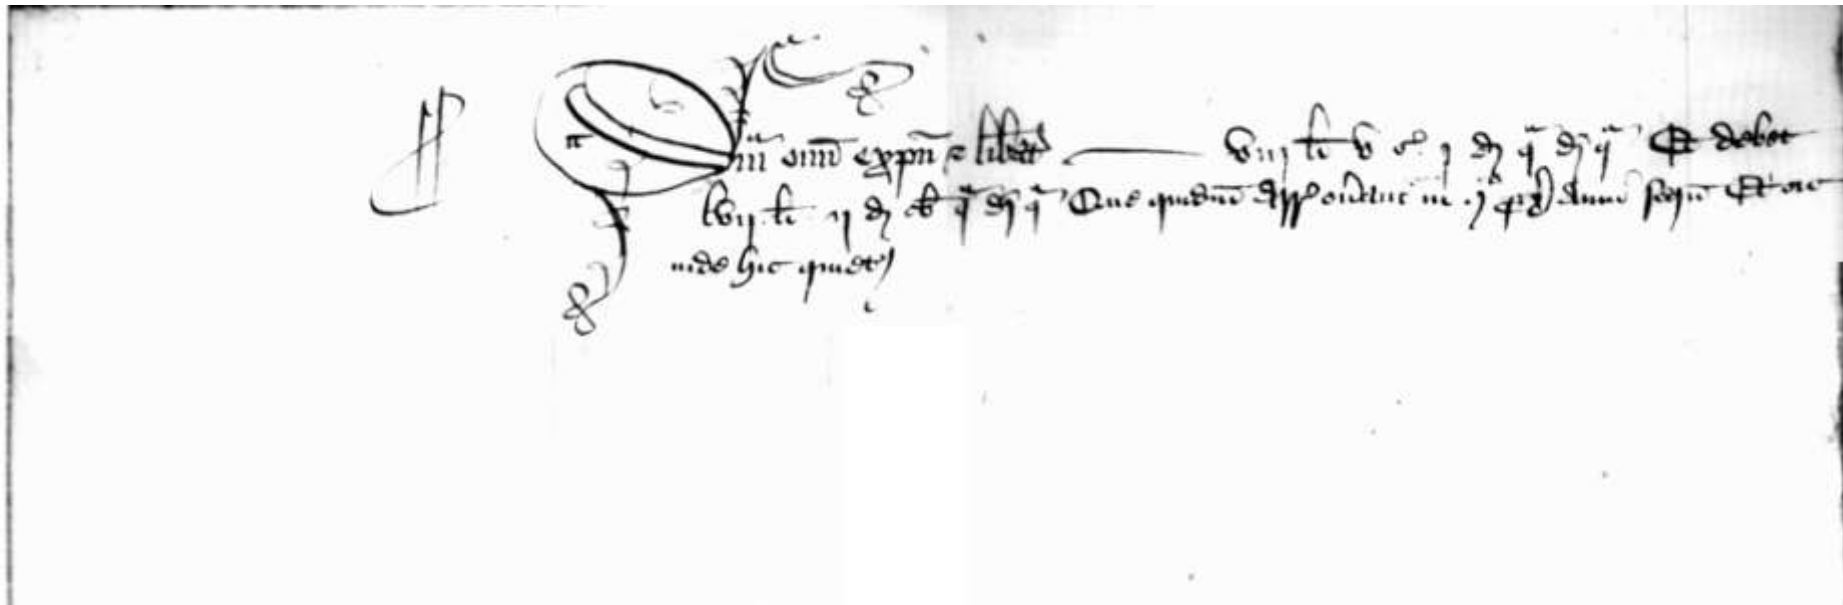 Sm̄ᵃ om̄ expn̄ ⁊ libat
viij li v s. j d q̄ᵃ di q̄ᵃ Et debet
lvij li ij d ob q̄ᵃ di q̄ᵃ Que quidem onᵃntur in sequ Et sic
inde hic quiet